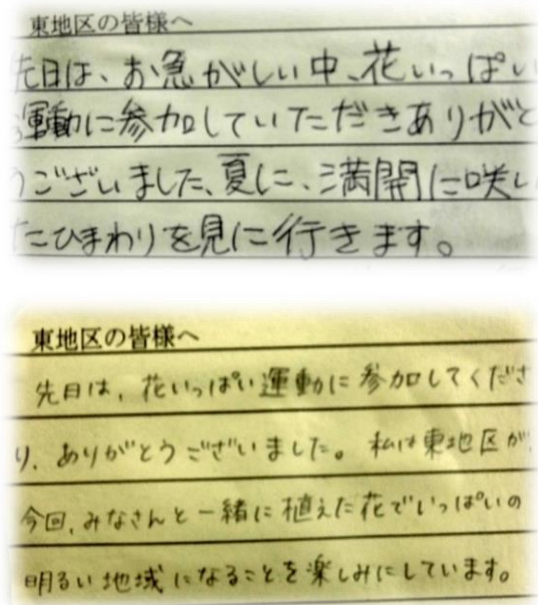 東地区の皆様へ
先日は、お急がしい中、花いっぱい
運動に参加していただきありがと
うございました、夏に、満開に咲い
たひまわりを見に行きます。
東地区の皆様へ
先日は、花いっぱい運動に参加してくださ
り、ありがとうございました。私は東地区が
今回、みなさんと一緒に植えた花でいっぱいの
明るい地域になることを楽しみにしています。